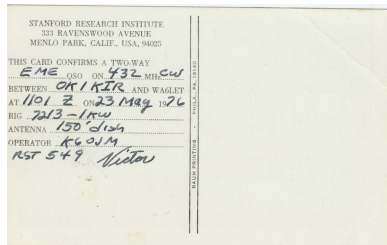 STANFORD RESEARCH INSTITUTE
333 RAVENSWOOD AVENUE
MENLO PARK, CALIF., USA, 94025
THIS CARD CONFIRMS A TWO-WAY
EME QSO ON 432 MHz CW
BETWEEN OK1KIR AND WA6LET
AT 1101 Z ON 23 May 1976
RIG 7213-1KW
ANTENNA 150' dish
OPERATOR K6OJM
RST 549 Victor
RAUM PRINTING - PHILA., PA. 19140